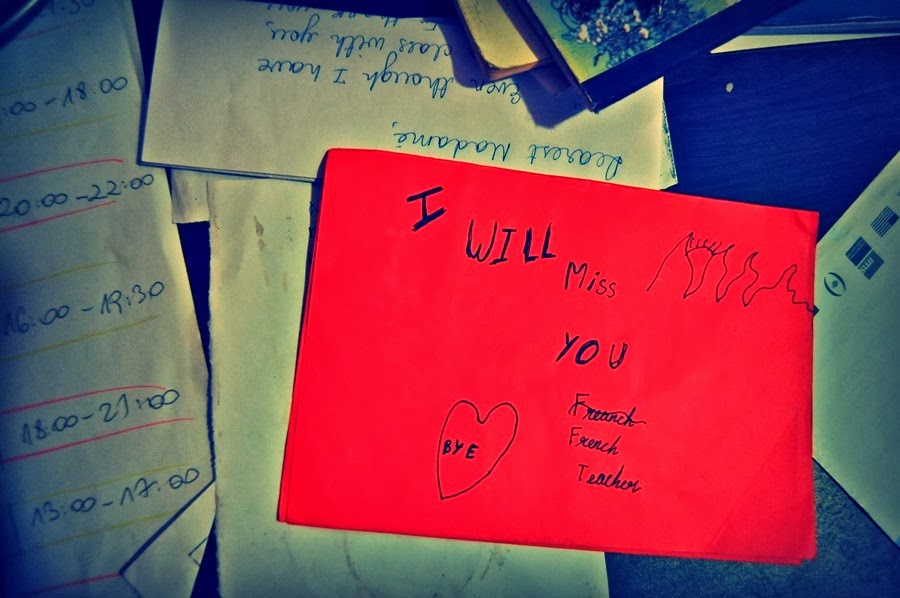 21:30
:00 - 18:00
20:00 - 22:00
16:00 - 19:30
18:00 - 21:00
13:00 - 17:00
Dearest Madame,
Even though I have
class with you,
I
WILL
Miss
YOU
French
Teacher
BYE